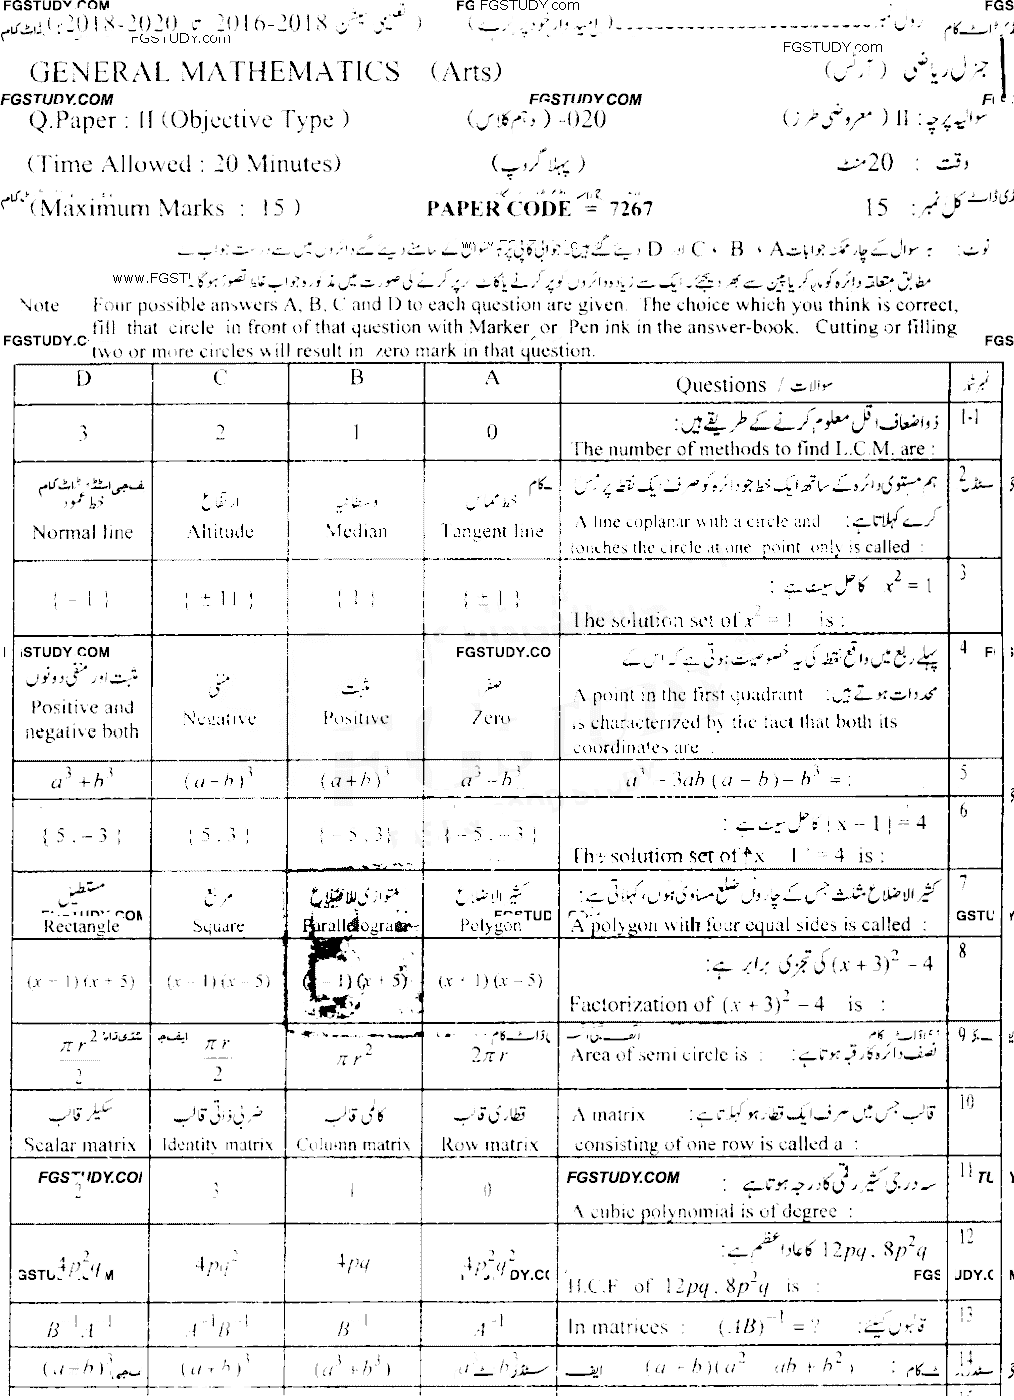 FGSTUDY.COM
FG FGSTUDY.com
FGS
رول نمبر (امیدوار خود پر کرے) (تعلیمی سیشن 2016-2018 تا 2018-2020)
FGSTUDY.com
FGSTUDY.com
GENERAL MATHEMATICS (Arts) جنرل ریاضی (آرٹس)
FGSTUDY.COM FGSTUDY.COM
Q.Paper : II (Objective Type) 020- (دہم کلاس) سوالیہ پرچہ : II (معروضی طرز)
(Time Allowed : 20 Minutes) (پہلا گروپ) وقت : 20 منٹ
(Maximum Marks : 15) PAPER CODE = 7267 کل نمبر : 15
نوٹ : ہر سوال کے چار ممکنہ جوابات A ، B ، C اور D دیئے گئے ہیں۔ جوابی کاپی پر ہر سوال کے سامنے دیئے گئے دائروں میں سے درست جواب کے
مطابق متعلقہ دائرہ کو مارکر یا پین سے بھر دیجئے۔ ایک سے زیادہ دائروں کو پر کرنے یا کاٹ کر پر کرنے کی صورت میں مذکورہ جواب غلط تصور ہو گا۔
Note Four possible answers A, B, C and D to each question are given. The choice which you think is correct,
fill that circle in front of that question with Marker or Pen ink in the answer-book. Cutting or filling
FGSTUDY.C FGS
two or more circles will result in zero mark in that question.
D C B A Questions / سوالات نمبر شمار
1-1 ذواضعاف اقل معلوم کرنے کے طریقے ہیں:
3 2 1 0 The number of methods to find L.C.M. are :
2 ہم مستوی دائرہ کے ساتھ ایک خط جو دائرہ کو صرف ایک نقطہ پر مس
خط عمود ارتفاع وسطانیہ خط مماس
Normal line Altitude Median Tangent line A line coplanar with a circle and کرے کہلاتا ہے:
touches the circle at one point only is called :
3 x² = 1 کا حل سیٹ ہے :
{ – 1 } { ± 11 } { 1 } { ± 1 } The solution set of x² = 1 is :
FGSTUDY.CO
4 پہلے ربع میں واقع نقطہ کی یہ خصوصیت ہوتی ہے کہ اس کے
مثبت اور منفی دونوں منفی مثبت صفر
Positive and negative both Negative Positive Zero A point in the first quadrant محددات ہوتے ہیں:
is characterized by the fact that both its
coordinates are :
a³ + b³ (a – b)³ (a + b)³ a³ – b³ a³ – 3ab (a – b) – b³ = : 5
6 |x – 1| = 4 کا حل سیٹ ہے :
{ 5 , – 3 } { 5 , 3 } { – 5 , 3 } { – 5 , – 3 } The solution set of |x – 1| = 4 is :
7 کثیر الاضلاع مثلث جس کے چاروں ضلع مساوی ہوں، کہلاتی ہے:
مستطیل مربع متوازی الاضلاع کثیر الاضلاع
Rectangle Square Parallelogram Polygon A polygon with four equal sides is called :
8 (x + 3)² – 4 کی تجزی برابر ہے:
(x – 1)(x + 5) (x + 1)(x – 5) Factorization of (x + 3)² – 4 is :
9 نصف دائرہ کا رقبہ ہوتا ہے:
πr²/2 πr/2 πr² 2πr Area of semi circle is :
10 قالب جس میں صرف ایک قطار ہو کہلاتا ہے:
سکیلر قالب ضربی ذاتی قالب کالمی قالب قطاری قالب A matrix
Scalar matrix Identity matrix Column matrix Row matrix consisting of one row is called a :
FGSTUDY.COM
11 سہ درجی کثیر رقمی کا درجہ ہوتا ہے :
2 3 1 0 A cubic polynomial is of degree :
12 12pq , 8p²q کا عاد اعظم ہے:
4p²q 4pq² 4pq 4p²q² H.C.F of 12pq , 8p²q is :
13 B⁻¹A⁻¹ A⁻¹B⁻¹ B⁻¹ A⁻¹ In matrices : (AB)⁻¹ = ? قالبوں کیلئے:
14 (a – b)³ (a + b)³ (a³ + b³)